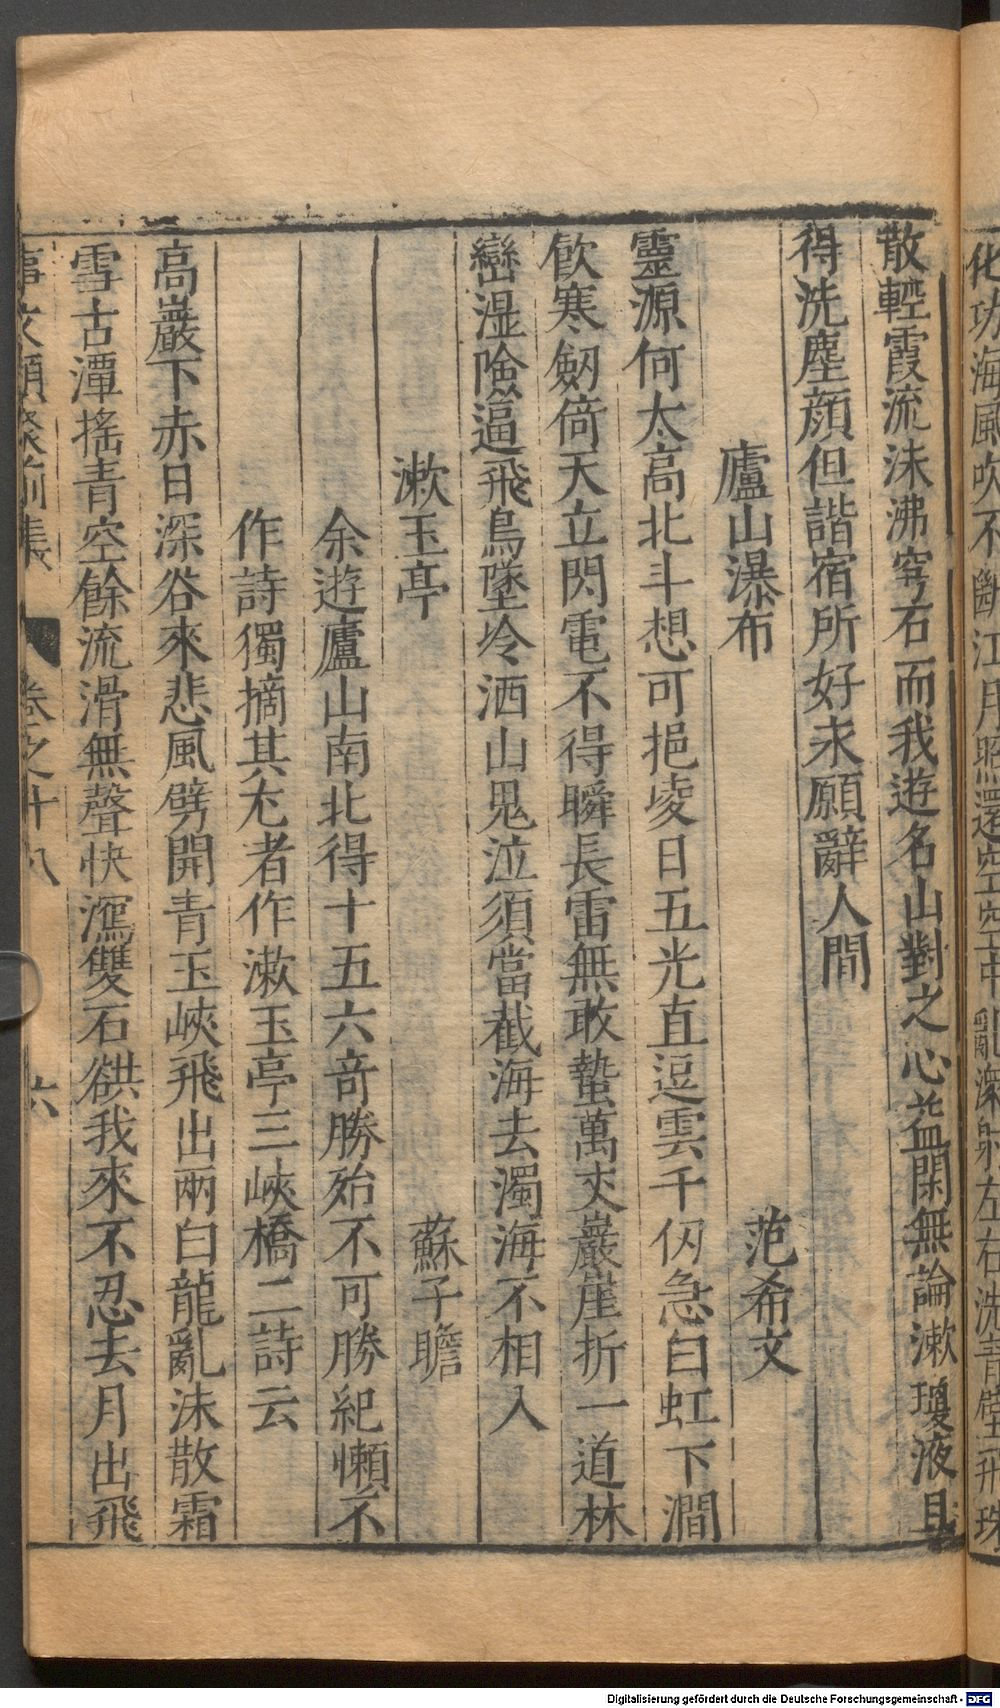 化功海風吹不斷江月照還空空中亂潨射左右洗青壁飛珠
散輕霞流沫沸穹石而我遊名山對之心益閑無論漱瓊液且
得洗塵顔但諧宿所好永願辭人間
廬山瀑布 范希文
靈源何太高北斗想可挹凌日五光直逗雲千仭急白虹下澗
飲寒劒倚天立閃電不得瞬長雷無敢蟄萬丈巖崖折一道林
巒湿險逼飛鳥墜冷洒山鬼泣須當截海去濁海不相入
漱玉亭 蘇子瞻
余遊廬山南北得十五六竒勝殆不可勝紀懶不
作詩獨摘其尤者作漱玉亭三峽橋二詩云
高巖下赤日深谷來悲風劈開青玉峽飛出兩白龍亂沫散霜
雪古潭搖青空餘流滑無聲快瀉雙石谼我來不忍去月出飛
事文類聚前集 卷之十八 六
Digitalisierung gefördert durch die Deutsche Forschungsgemeinschaft - DFG